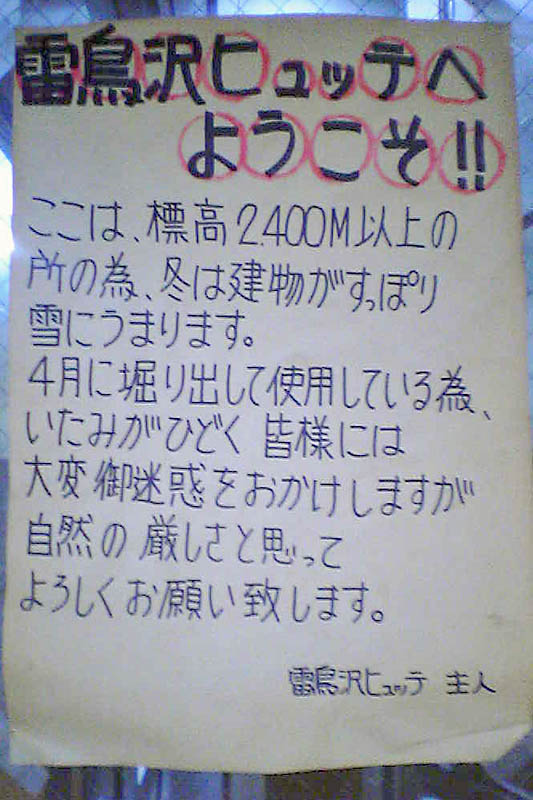 雷鳥沢ヒュッテへ
ようこそ!!
ここは、標高2.400M以上の
所の為、冬は建物がすっぽり
雪にうまります。
4月に堀り出して使用している為、
いたみがひどく 皆様には
大変御迷惑をおかけしますが
自然の厳しさと思って
よろしくお願い致します。
雷鳥沢ヒュッテ 主人